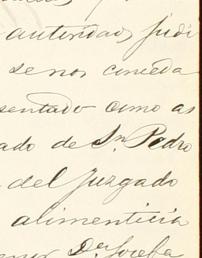 autoridad, judi
se nos conceda
sentado como as
ado de Sn. Pedro
del Juzgado
alimenticia